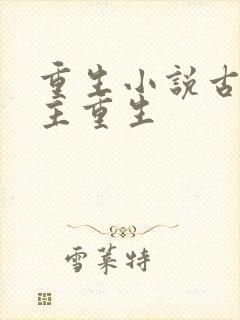 重生小說古
主重生
雪莱特